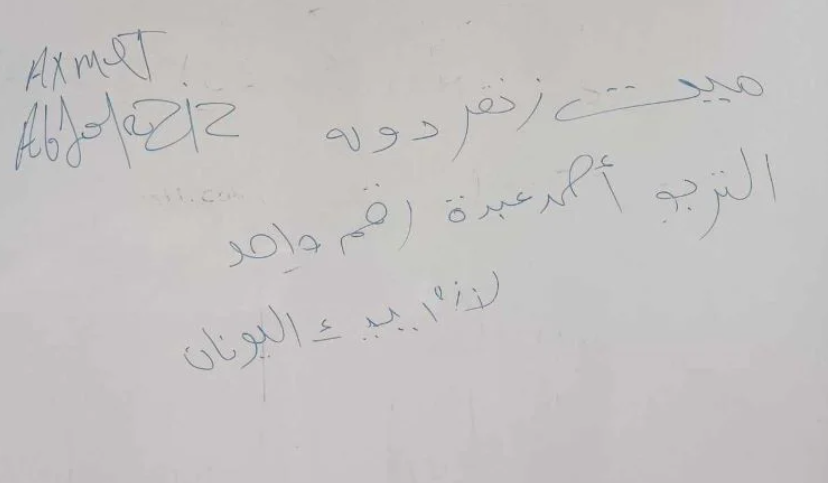 AxmeT
Abdolaziz
ميت زنقر دونه
التربو أحمد عبدة رقم واحد
اليونان